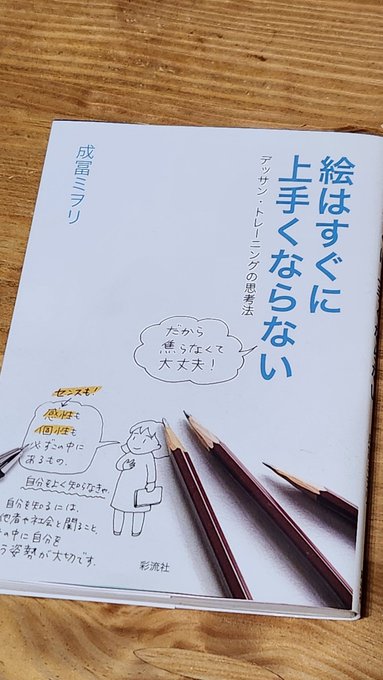 絵はすぐに
上手くならない
デッサン・トレーニングの思考法
成冨ミヲリ
だから
焦らなくて
大丈夫！
センスも！
感性も
個性も
必ずこの中に
あるもの。
自分をよく知らなきゃ。
自分を知るには、
他者や社会と関ること。
の中に自分を
う姿勢が大切です。
彩流社